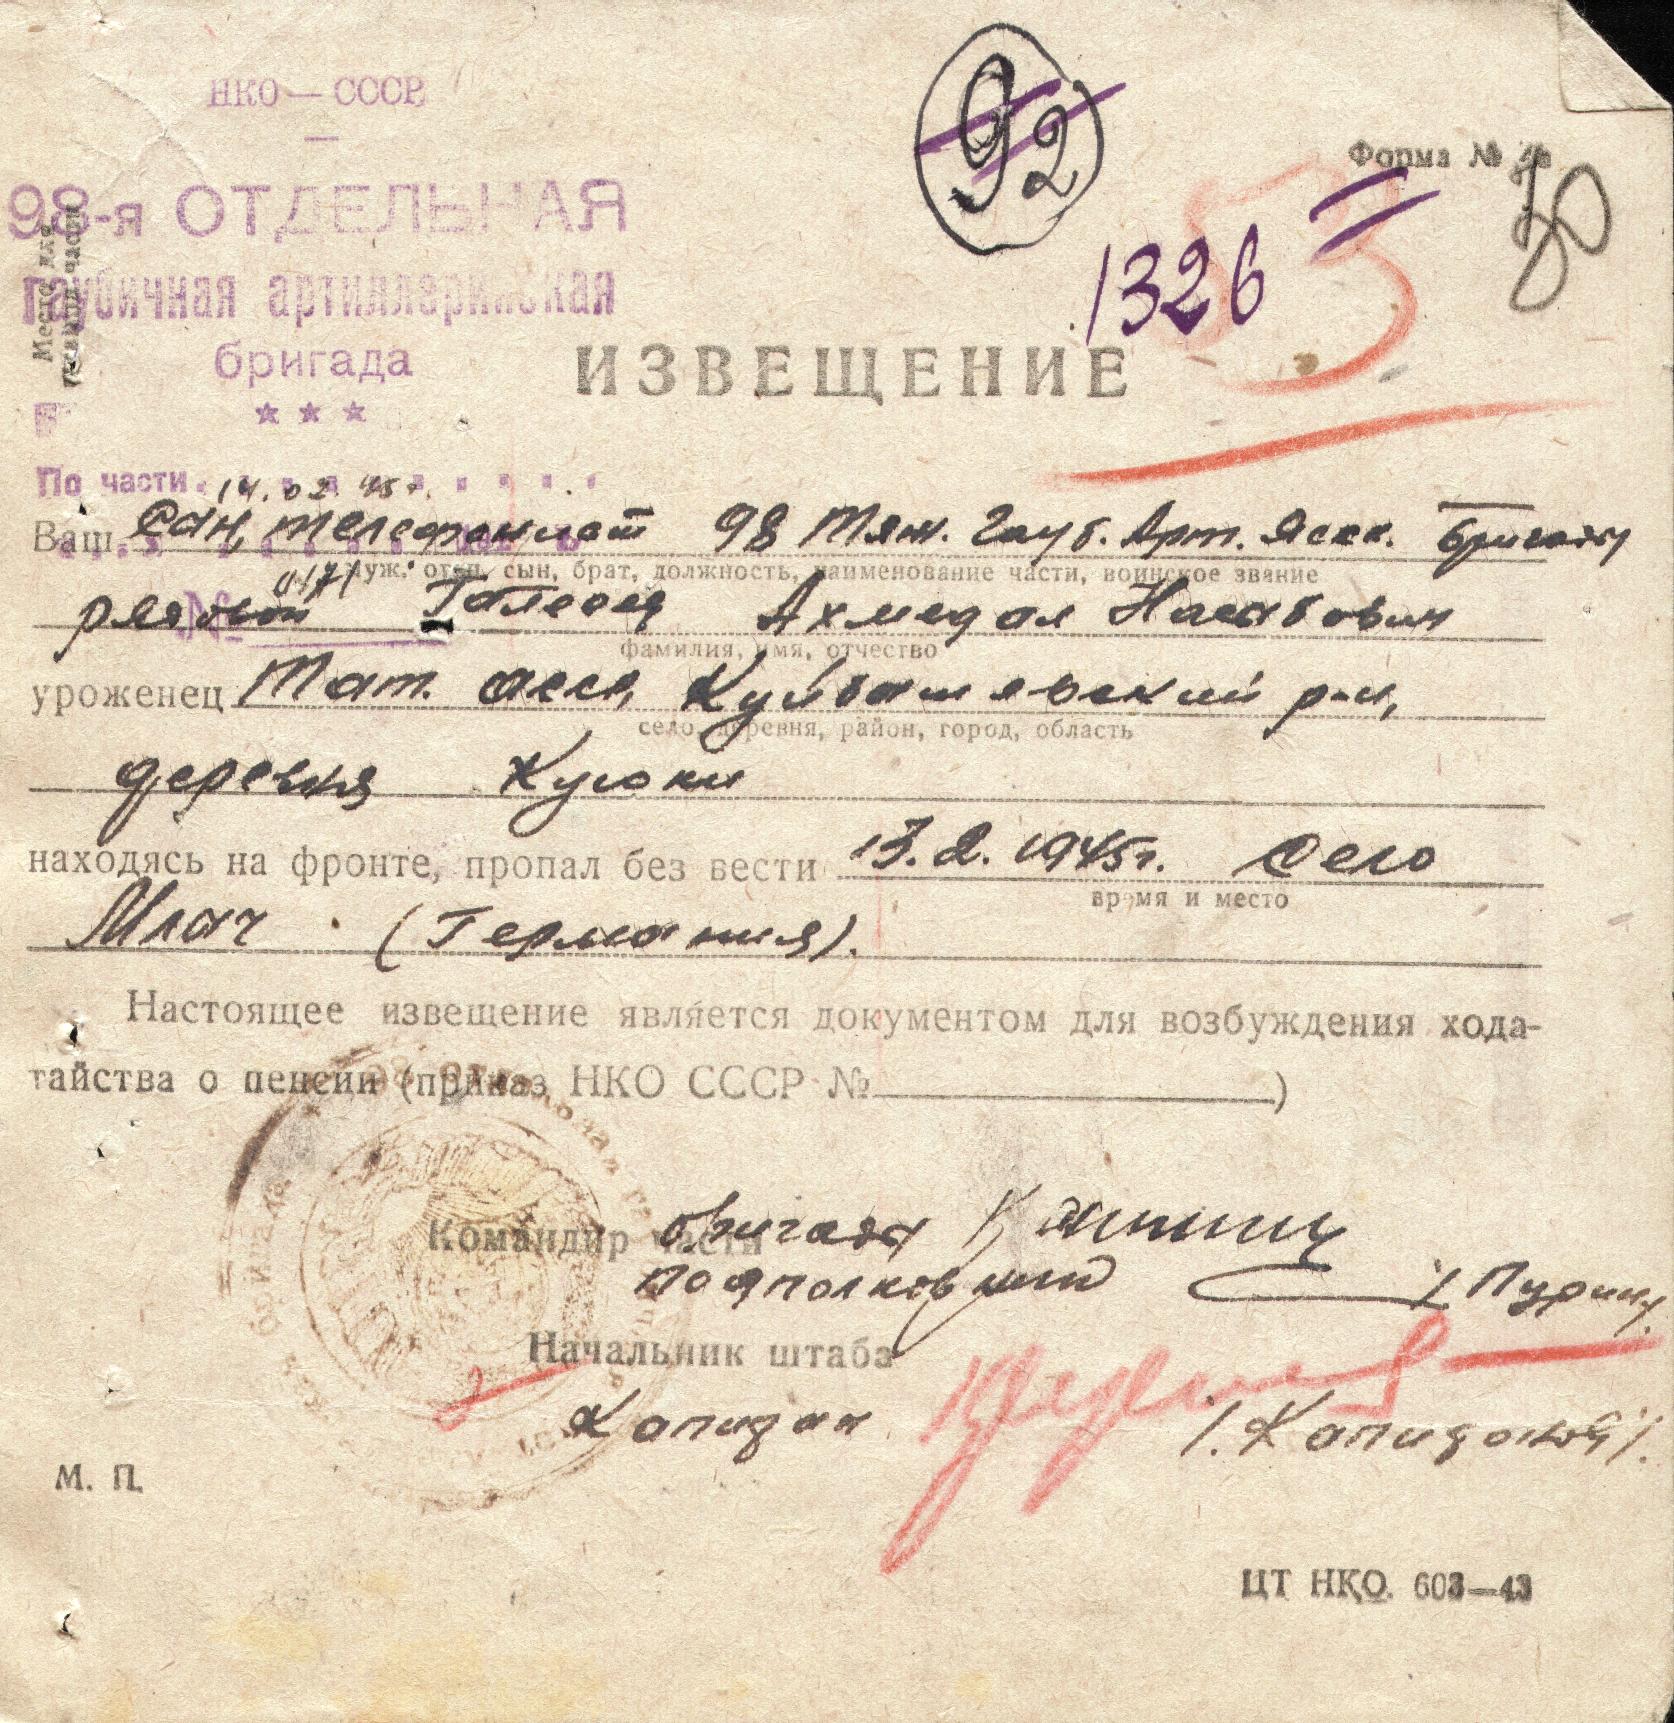 НКО — СССР
92
Форма №
80
98-я ОТДЕЛЬНАЯ
53
1326
Место
части
гаубичная артиллерийская
бригада
ИЗВЕЩЕНИЕ
★ ★ ★
По части. 14.02.45 г.
Ваш сын, телефонист 98 Тяж. Гауб. Арт. Ясск. бригады
муж, отец, сын, брат, должность, наименование части, воинское звание
№ 0171
рядовой Ахмедал Насыбович
фамилия, имя, отчество
уроженец Тат. асср, Куйбышевский р-н,
село, деревня, район, город, область
деревня Куюки
находясь на фронте, пропал без вести 13.2.1945г. село
время и место
Млач (Германия).
Настоящее извещение является документом для возбуждения хода-
тайства о пенсии (приказ НКО СССР № )
Командир части бригады
подполковник / Пурин /
Начальник штаба
Капитан
М. П.
ЦТ НКО. 603—43